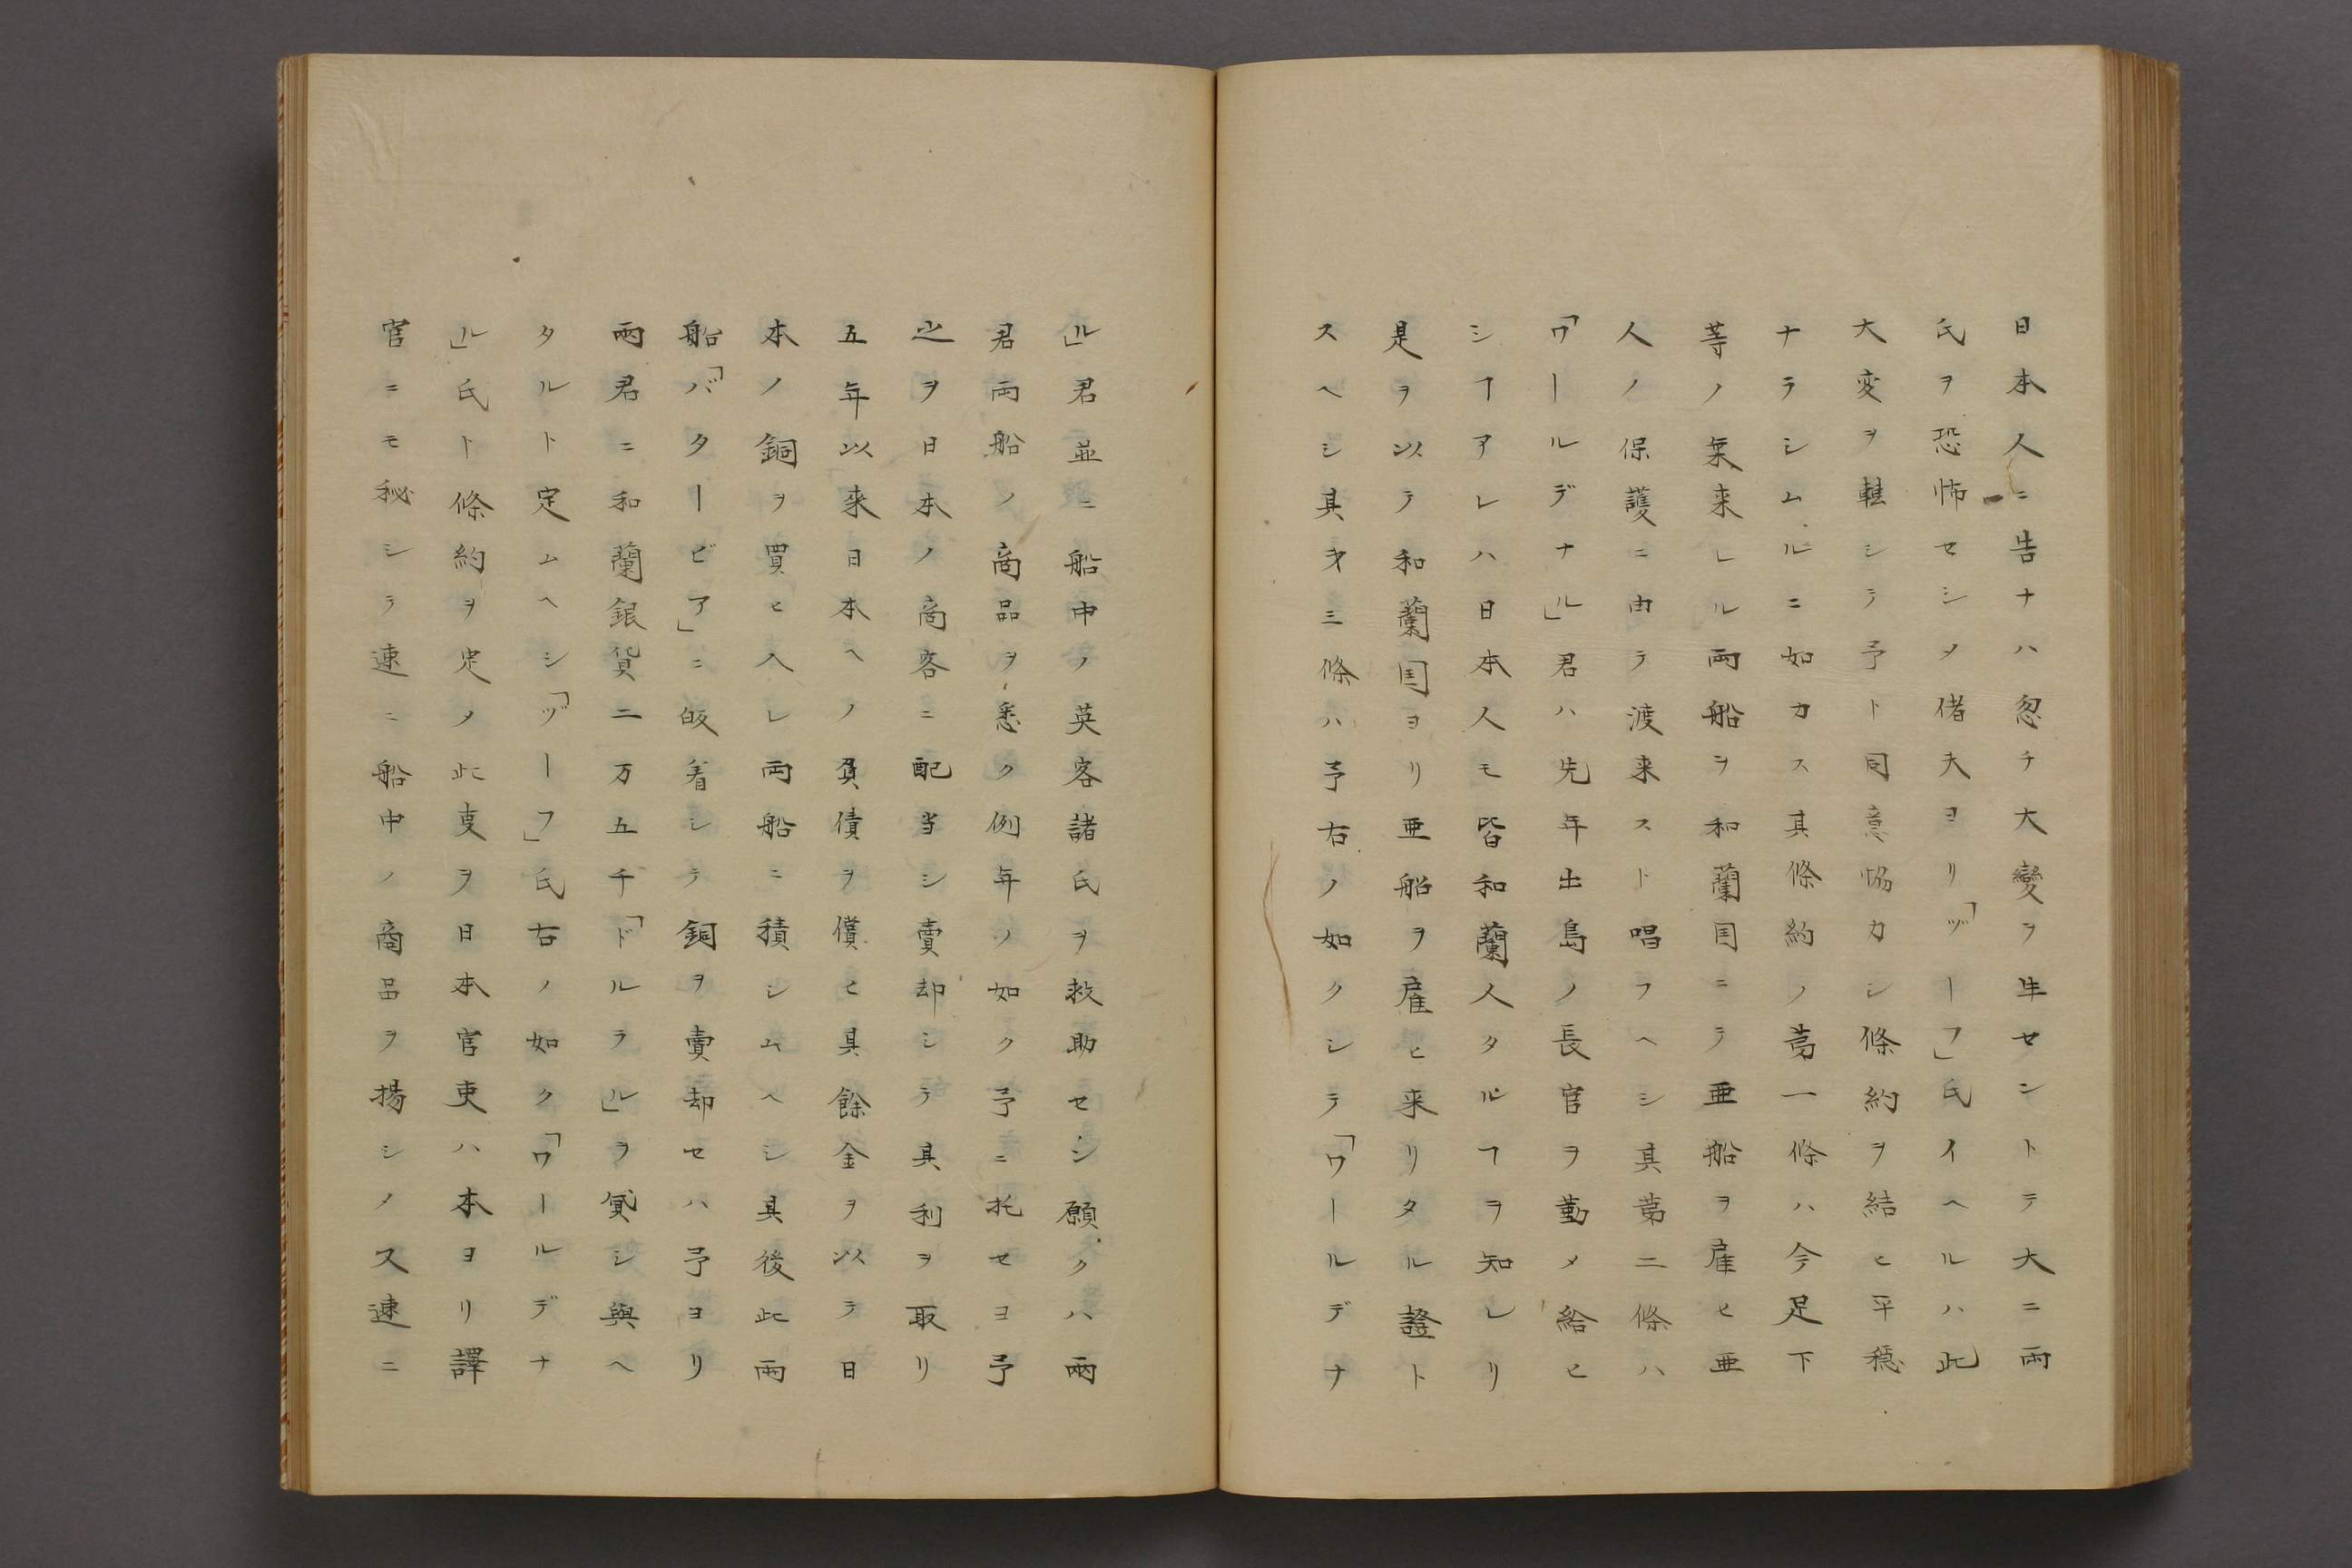 日本人ニ告ナハ忽チ大變ヲ生セントテ大ニ両
氏ヲ恐怖セシメ偖夫ヨリ「ヅーフ」氏イヘルハ此
大変ヲ轉シテ予ト同意協力シ條約ヲ結ヒ平穏
ナラシムルニ如カス其條約ノ苐一條ハ今足下
等ノ乗来レル両船ヲ和蘭国ニテ亜船ヲ雇ヒ亜
人ノ保護ニ由テ渡来スト唱フヘシ其苐二條ハ
「ワールデナル」君ハ先年出島ノ長官ヲ勤メ給ヒ
シヿアレハ日本人モ皆和蘭人タルヿヲ知レリ
是ヲ以テ和蘭国ヨリ亜船ヲ雇ヒ来リタル證ト
スヘシ其㐧三條ハ予右ノ如クシテ「ワールデナ
ル」君並ニ船中ノ英客諸氏ヲ救助セシ願クハ両
君両船ノ商品ヲ悉ク例年ノ如ク予ニ托セヨ予
之ヲ日本ノ商客ニ配当シ賣却シテ其利ヲ取リ
五年以来日本ヘノ負債ヲ償ヒ其餘金ヲ以テ日
本ノ銅ヲ買ヒ入レ両船ニ積シムヘシ其後此両
船「バタービア」ニ皈着シテ銅ヲ賣却セハ予ヨリ
両君ニ和蘭銀貨二万五千「ドルラル」ヲ貸シ與ヘ
タルト定ムヘシ「ヅーフ」氏右ノ如ク「ワールデナ
ル」氏ト條約ヲ定メ此叓ヲ日本官吏ハ本ヨリ譯
官ニモ秘シテ速ニ船中ノ商品ヲ揚シメ又速ニ